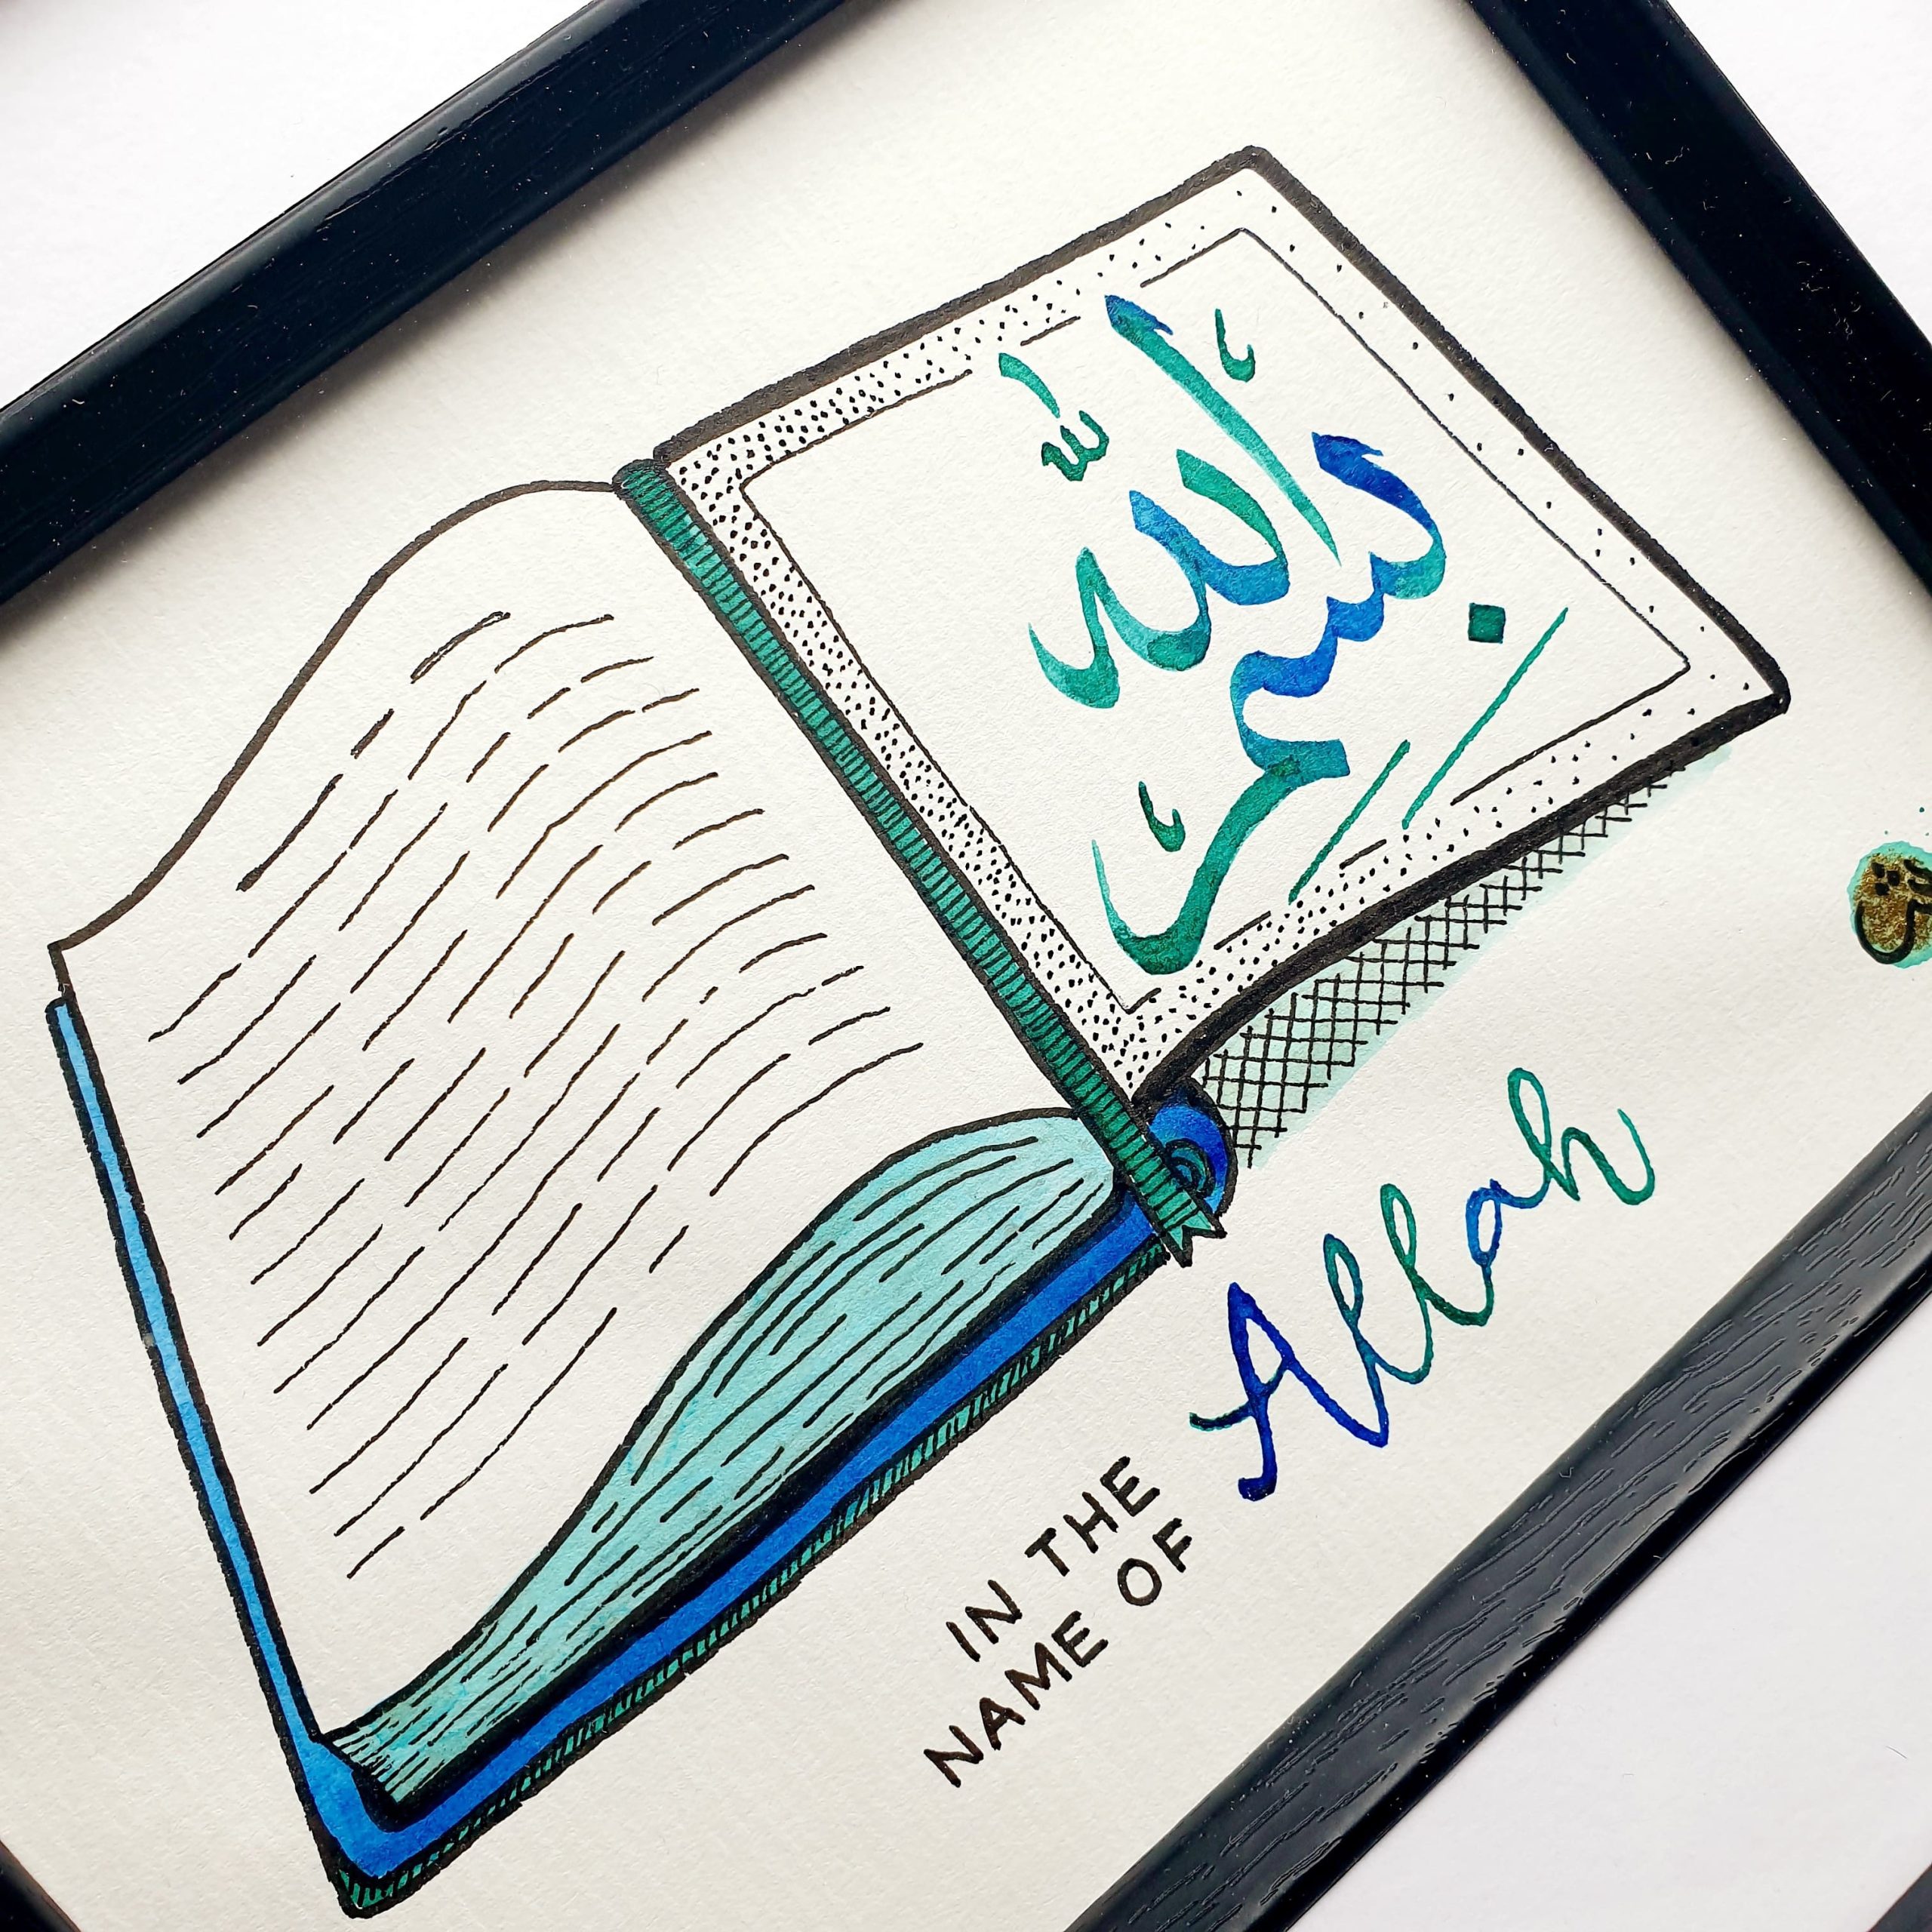 بسم الله
IN THE
NAME OF
Allah